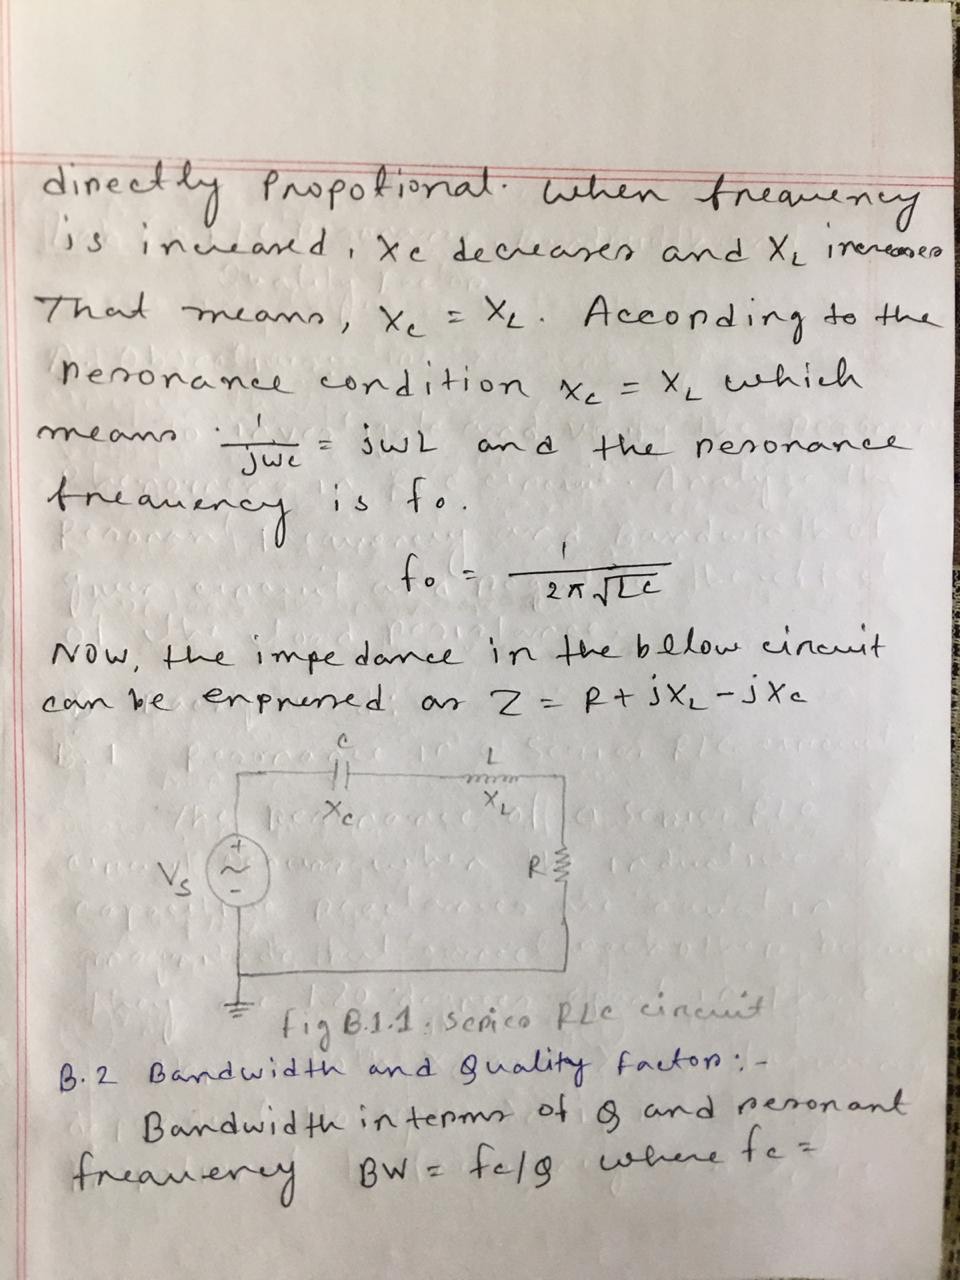 directly Propotional. When frequency
is increased, Xc decreases and XL increases
That means, Xc = XL. According to the
resonance condition Xc = XL which
means 1/jwc = jwL and the resonance
frequency is fo.
fo = 1/2π√LC
Now, the impedance in the below circuit
can be expressed as Z = R + jXL - jXc
C
L
Xc
XL
+
~
-
Vs
R
fig B.1.1: Series RLC circuit
B.2 Bandwidth and Quality factor:-
Bandwidth in terms of Q and resonant
frequency BW = fc/Q where fc =